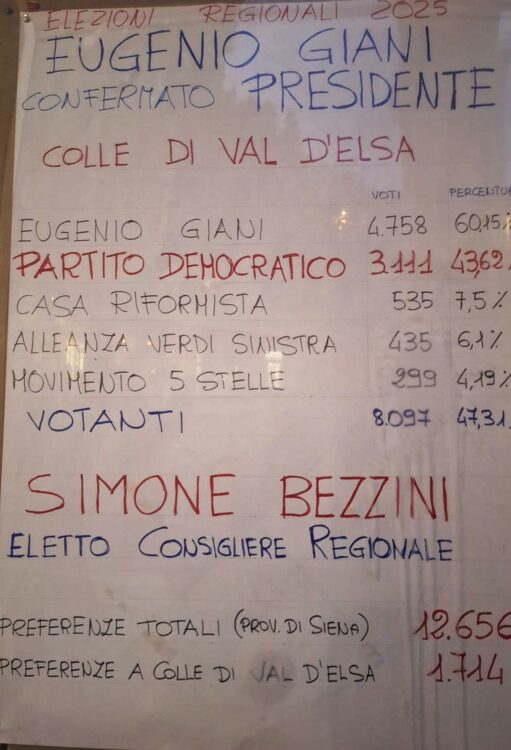 ELEZIONI REGIONALI 2025
EUGENIO GIANI
CONFERMATO PRESIDENTE
COLLE DI VAL D'ELSA
VOTI PERCENTU
EUGENIO GIANI 4.758 60,15%
PARTITO DEMOCRATICO 3.111 43,62%
CASA RIFORMISTA 535 7,5%
ALLEANZA VERDI SINISTRA 435 6,1%
MOVIMENTO 5 STELLE 299 4,19%
VOTANTI 8.097 47,31
SIMONE BEZZINI
ELETTO CONSIGLIERE REGIONALE
PREFERENZE TOTALI (PROV. DI SIENA) 12.656
PREFERENZE A COLLE DI VAL D'ELSA 1.714